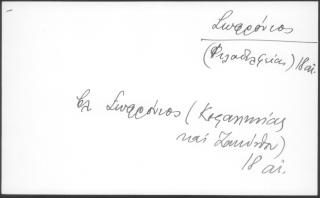 Σωφρόνιος
(Φιλαδελφείας) 18 αἰ.
βλ Σωφρόνιος (Κεφαλληνίας
καὶ Ζακύνθου)
18 αἰ.